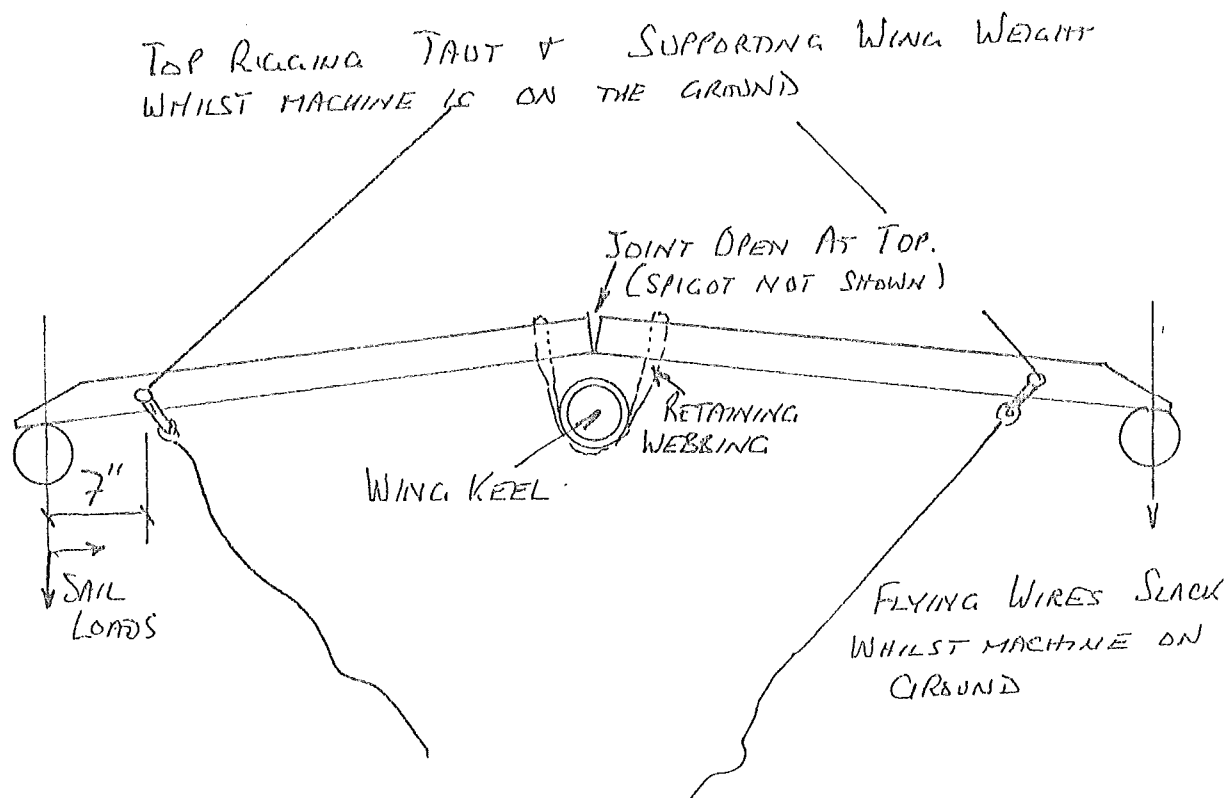 TOP RIGGING TAUT & SUPPORTING WING WEIGHT
WHILST MACHINE IS ON THE GROUND
JOINT OPEN AT TOP.
(SPIGOT NOT SHOWN)
RETAINING
WEBBING
WING KEEL.
7"
SAIL
LOADS
FLYING WIRES SLACK
WHILST MACHINE ON
GROUND